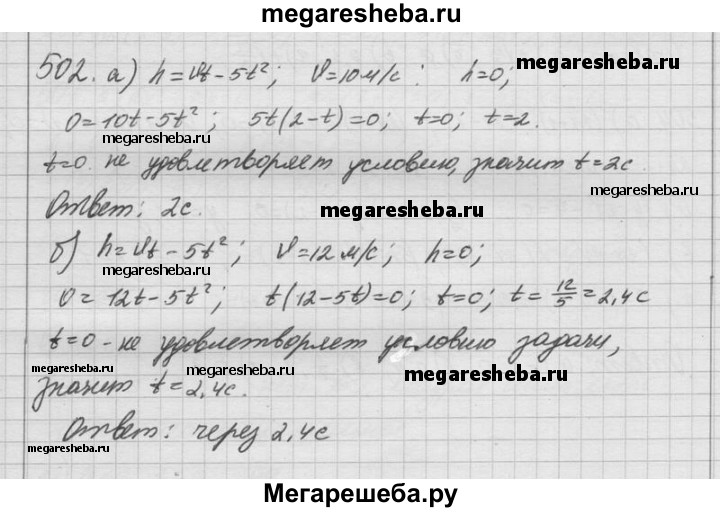 megaresheba.ru
502. а) h = υt - 5t²; υ = 10 м/с; h = 0;
megaresheba.ru
0 = 10t - 5t²; 5t(2 - t) = 0; t = 0; t = 2.
megaresheba.ru
t = 0. не удовлетворяет условию, значит t = 2с
megaresheba.ru
Ответ: 2с.
megaresheba.ru
б) h = υt - 5t²; υ = 12 м/с; h = 0;
0 = 12t - 5t²; t(12 - 5t) = 0; t = 0; t = 12/5 = 2,4 с
t = 0 - не удовлетворяет условию задачи,
megaresheba.ru
megaresheba.ru
значит t = 2,4с.
Ответ: через 2,4с
megaresheba.ru
Мегарешеба.ру